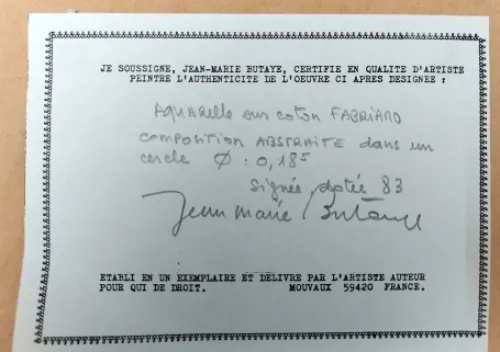 JE SOUSSIGNE, JEAN-MARIE BUTAYE, CERTIFIE EN QUALITE D'ARTISTE
PEINTRE L'AUTHENTICITE DE L'OEUVRE CI APRES DESIGNEE :
AQUARelle sur coton FABRIANO
COMPOSITION ABSTRAITE dans un
cercle Ø : 0,185
Signée datée 83
Jean Marie Butaye
ETABLI EN UN EXEMPLAIRE ET DELIVRE PAR L'ARTISTE AUTEUR
POUR QUI DE DROIT. MOUVAUX 59420 FRANCE.